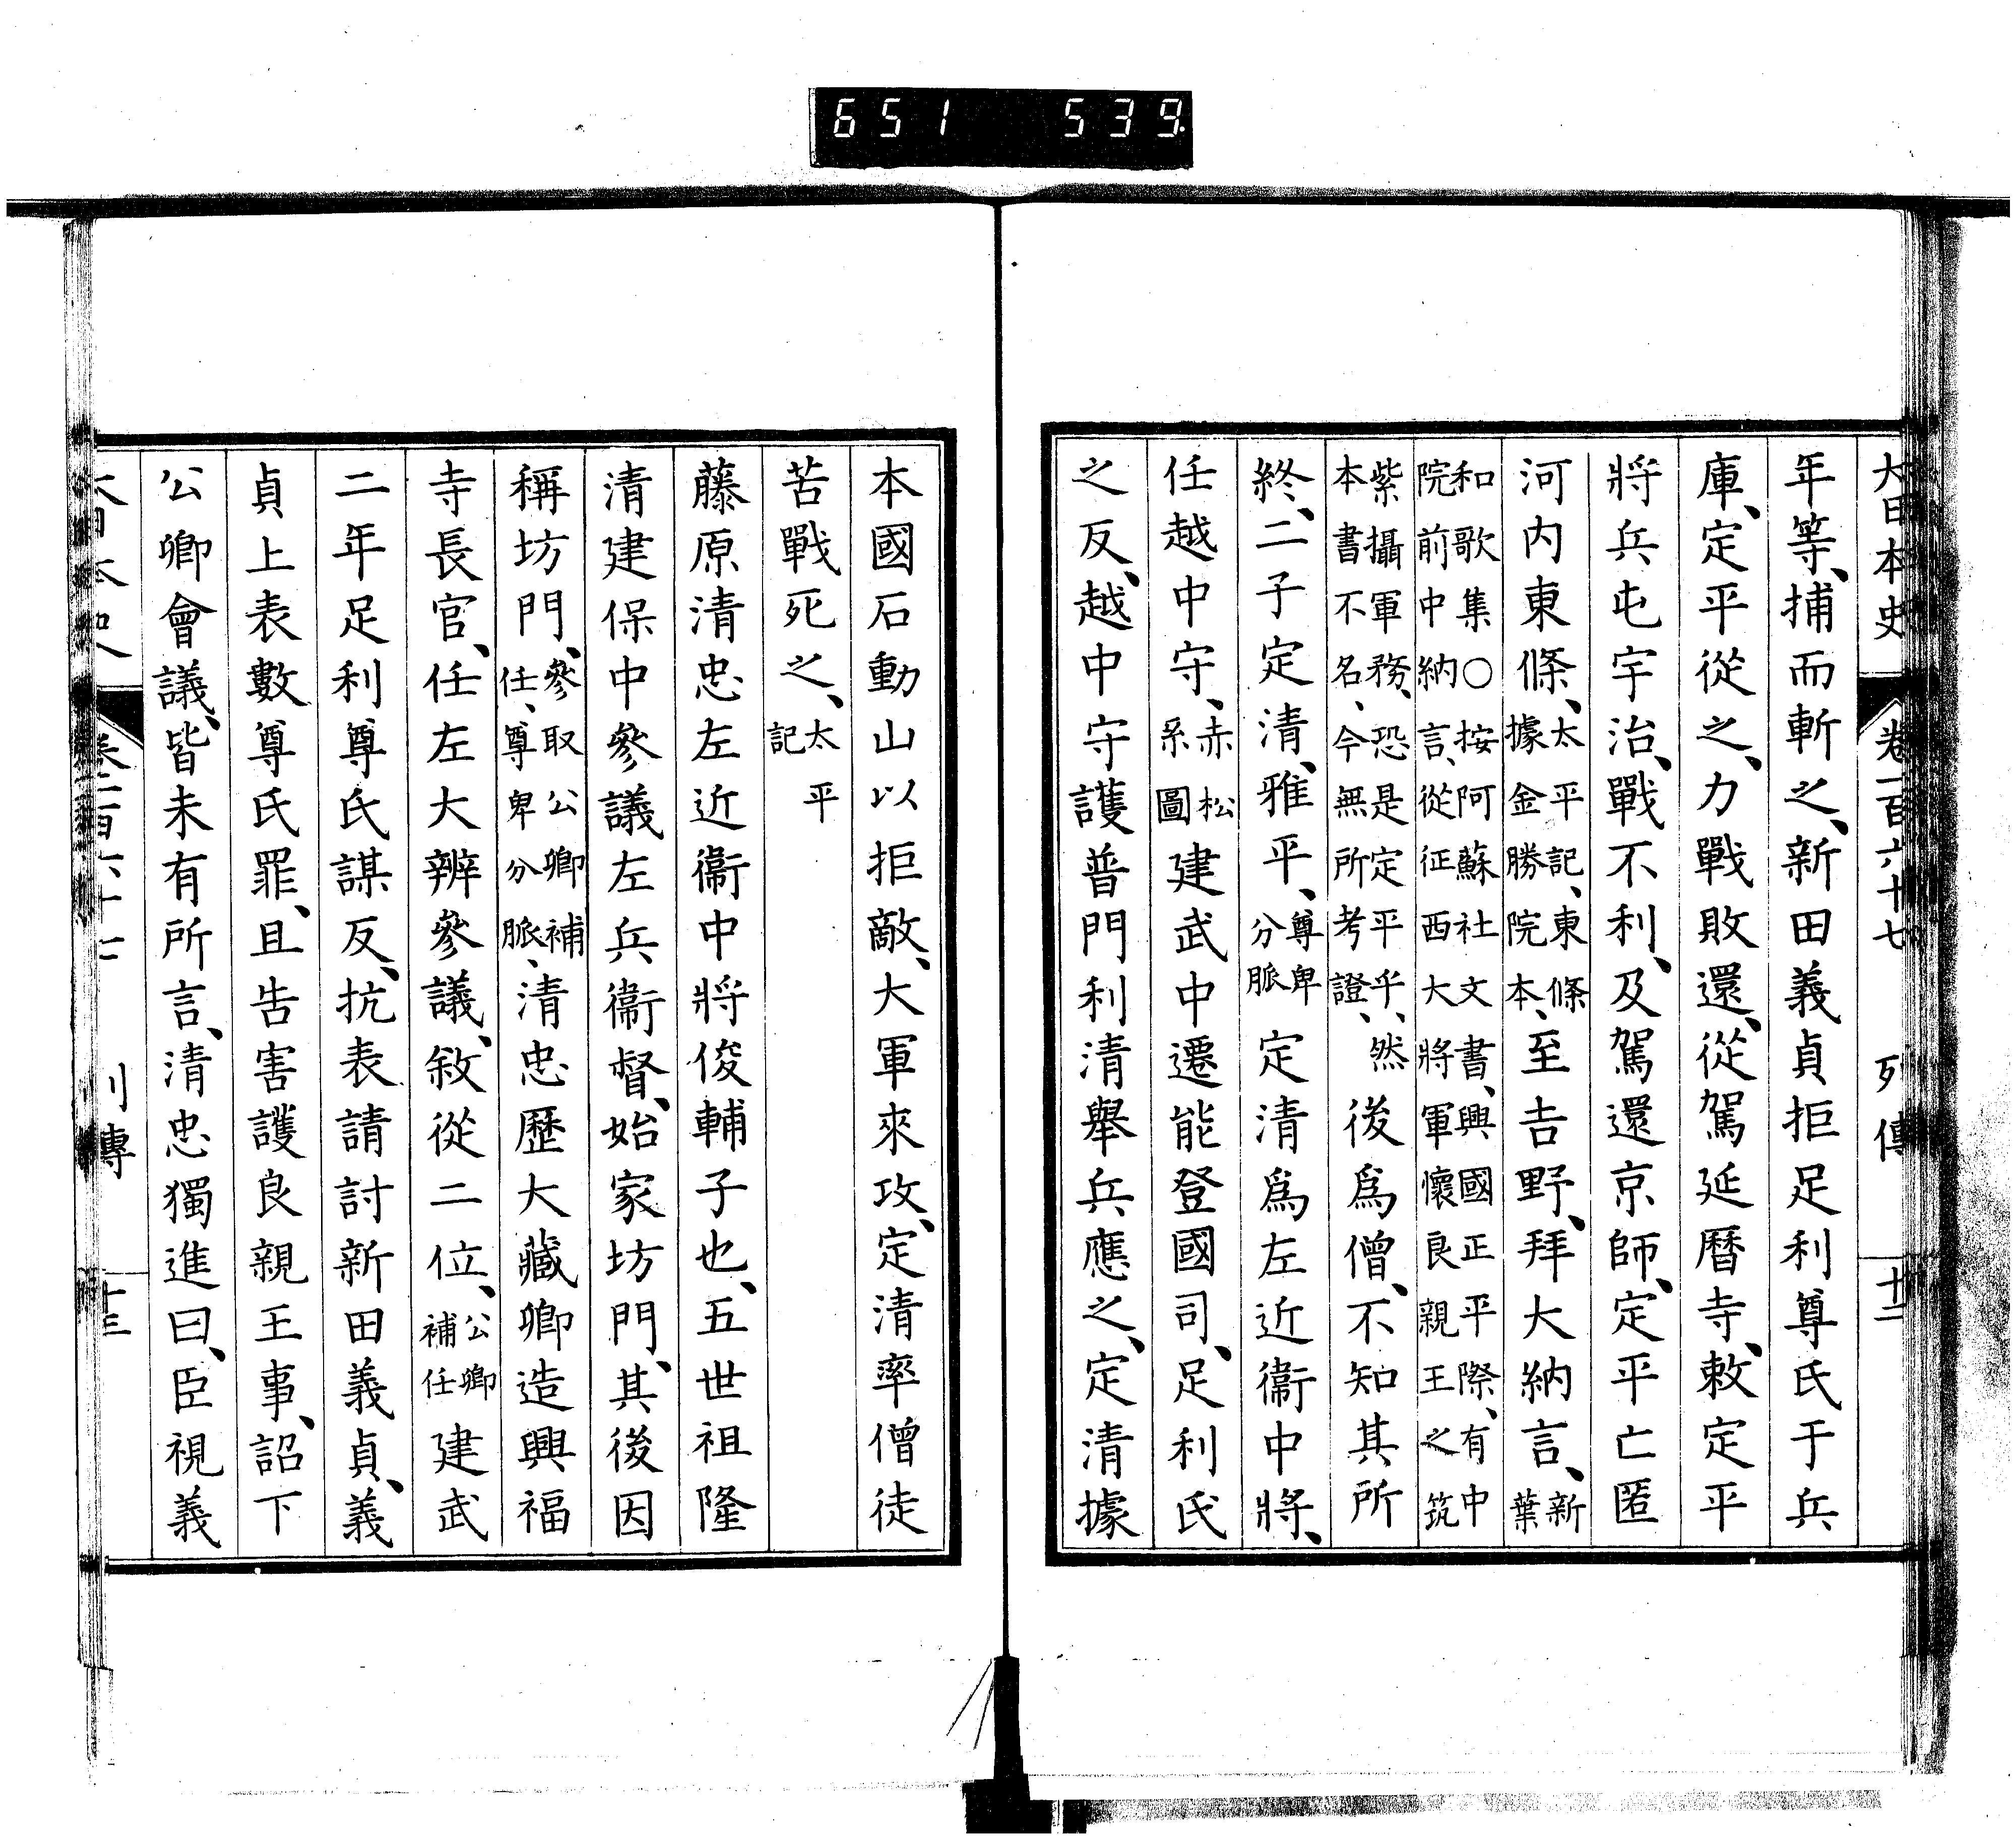 651 539
大日本史 卷一百六十七 列傳 十二
年等、捕而斬之、新田義貞拒足利尊氏于兵
庫、定平從之、力戰敗還、從駕延曆寺、敕定平
將兵屯宇治、戰不利、及駕還京師、定平亡匿
河内東條、太平記、東條據金勝院本、至吉野、拜大納言、新葉
和歌集○按阿蘇社文書、興國正平際、有中院前中納言、從征西大將軍懷良親王之筑
紫攝軍務、恐是定平乎、然本書不名、今無所考證、後爲僧、不知其所
終、二子定清、雅平、尊卑分脈定清爲左近衞中將、
任越中守、赤松系圖建武中遷能登國司、足利氏
之反、越中守護普門利清舉兵應之、定清據
本國石動山以拒敵、大軍來攻、定清率僧徒
苦戰死之、太平記
藤原清忠左近衞中將俊輔子也、五世祖隆
清建保中參議左兵衞督、始家坊門、其後因
稱坊門、參取公卿補任、尊卑分脈、清忠歷大藏卿造興福
寺長官、任左大辨參議、敘從二位、公卿補任建武
二年足利尊氏謀反、抗表請討新田義貞、義
貞上表數尊氏罪、且告害護良親王事、詔下
公卿會議、皆未有所言、清忠獨進曰、臣視義
大日本史 卷一百六十七 列傳 十三